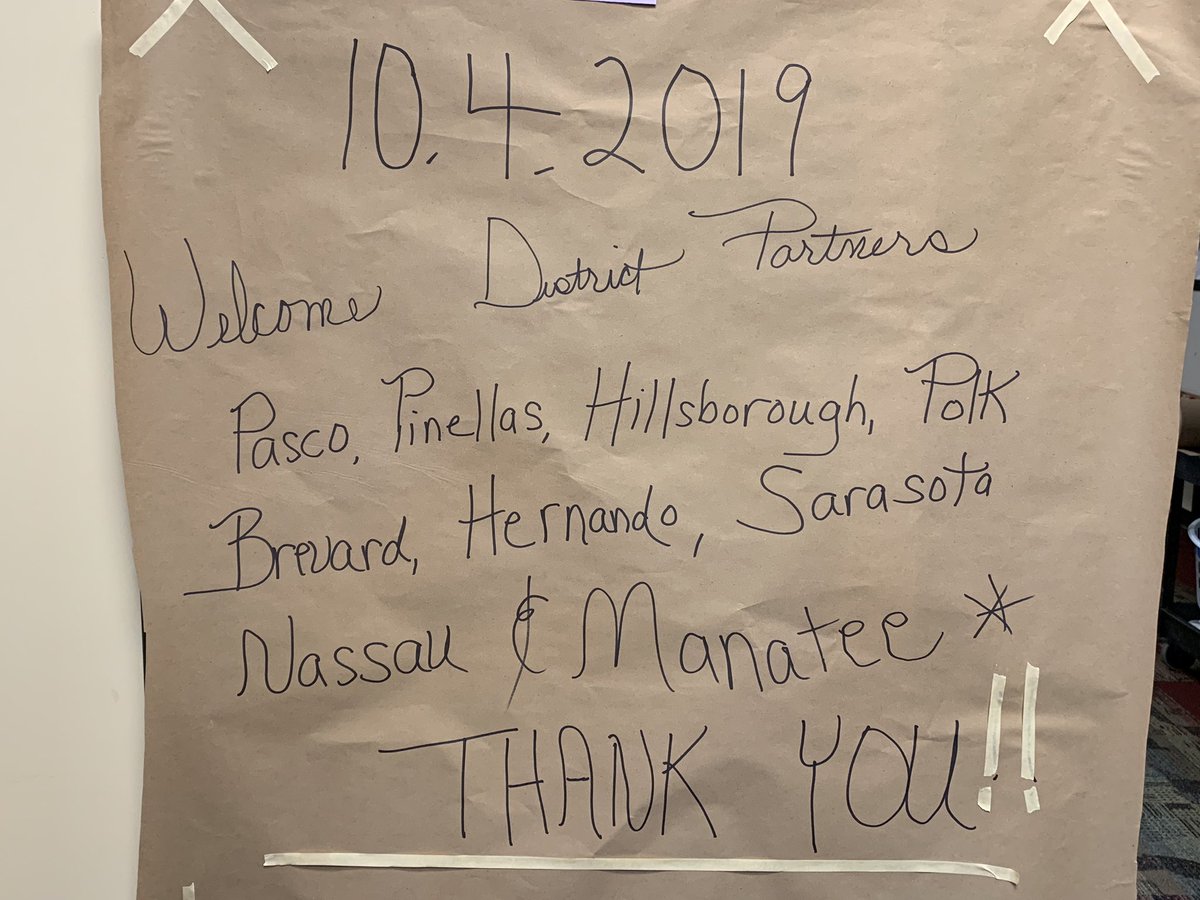 10.4.2019
Welcome District Partners
Pasco, Pinellas, Hillsborough, Polk
Brevard, Hernando, Sarasota
Nassau & Manatee *
THANK YOU!!